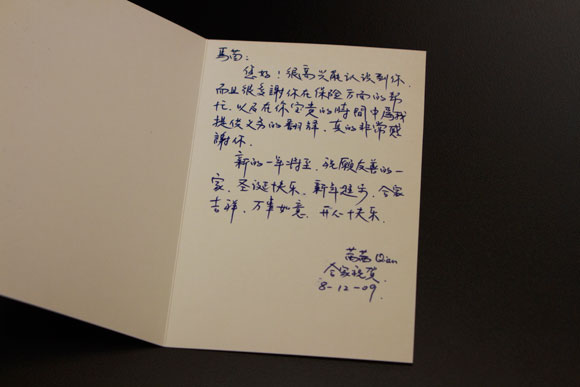 馬茵：
您好！很高兴能认识到你、
而且很多謝你在保险方面的帮
忙、以及在你宝贵的時間中属我
提供义务的翻译、真的非常感
謝你。
新的一年将至、祝願友善的一
家、圣诞快乐、新年進步、合家
吉祥、万事如意、开心快乐。
茵茵 Qian
合家祝贺
8-12-09